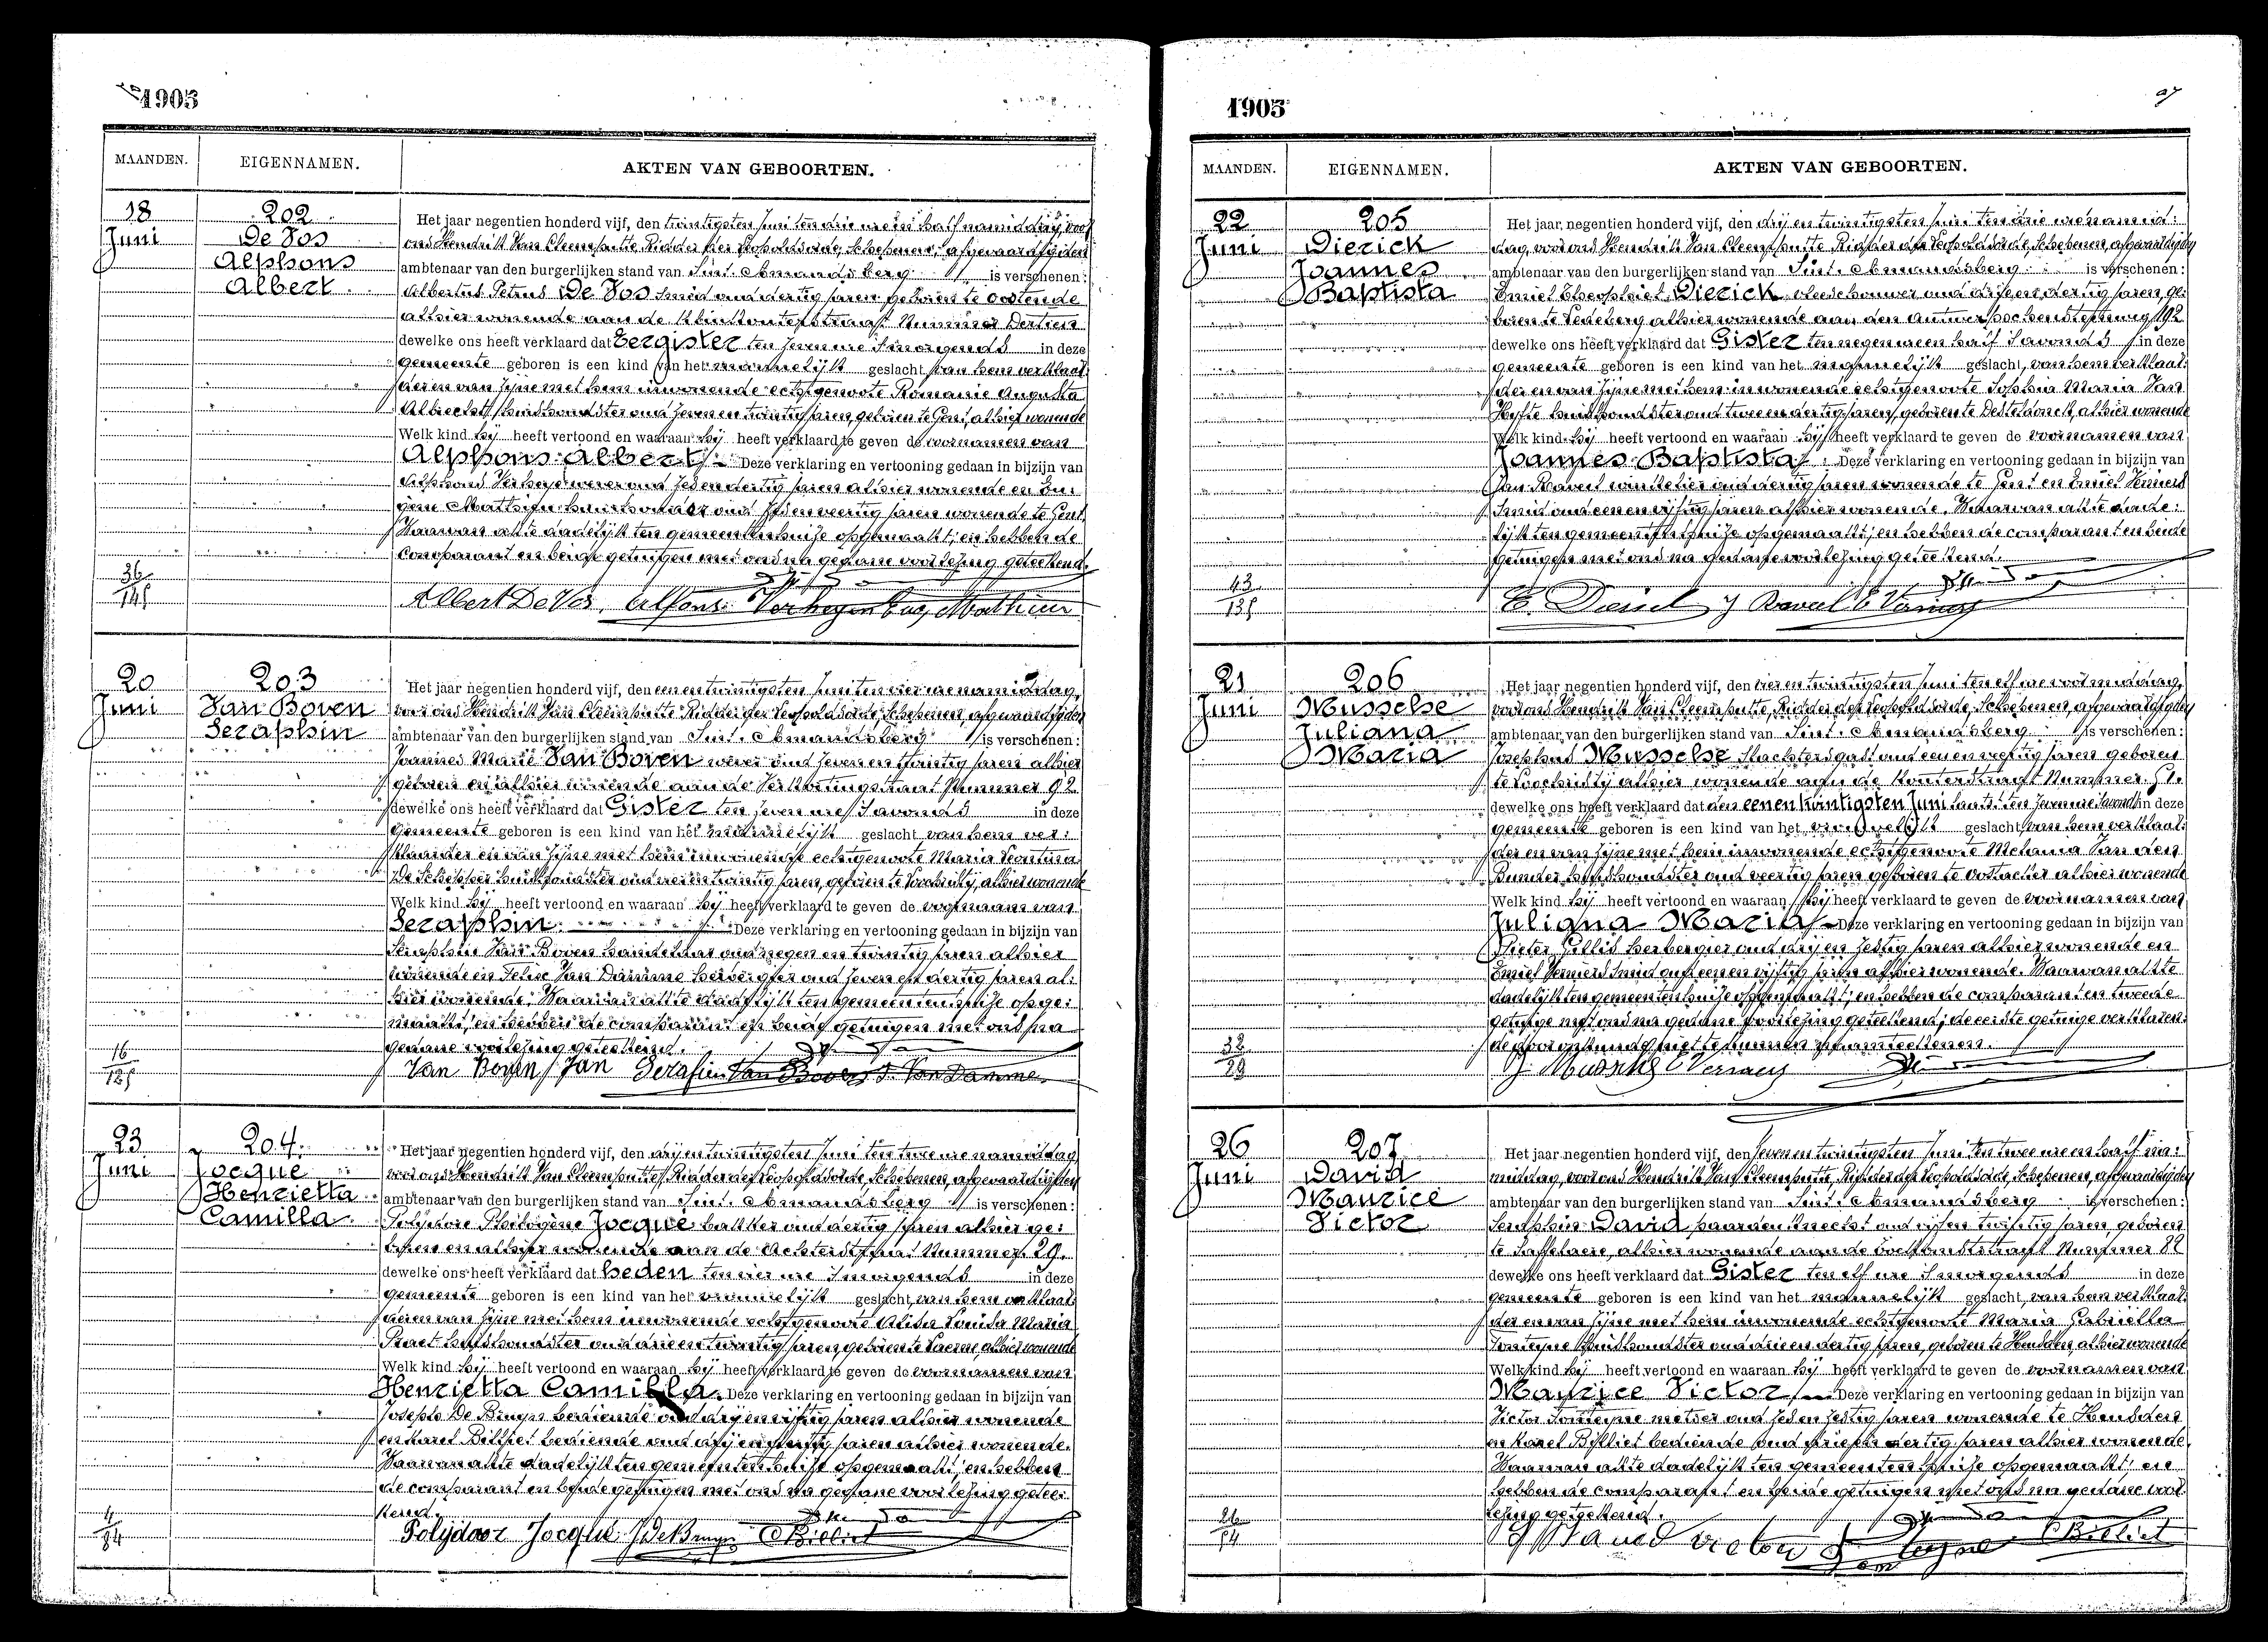 1905
MAANDEN. EIGENNAMEN. AKTEN VAN GEBOORTEN.
18 Juni
202
De Vos
Alphons
Albert
Het jaar negentien honderd vijf, den twintigsten Juni ten drie ure en half namiddag, voor
ons Hendrik Van Cleemputte, Ridder der Leopoldsorde, Schepenen, afgevaardigden
ambtenaar van den burgerlijken stand van Sint-Amandsberg is verschenen:
Albertus Petrus De Vos smid oud dertig jaren geboren te Oostende
alhier wonende aan de Kleinkouterstraat Nummer Dertien
dewelke ons heeft verklaard dat Eergister ten zeven ure 's morgends in deze
gemeente geboren is een kind van het mannelijk geslacht, van hem verklaar-
der en van zijne met hem inwonende echtgenoote Romanie Augusta
Albrecht, huishoudster oud zeven en twintig jaren, geboren te Gent, alhier wonende
Welk kind hij heeft vertoond en waaraan hij heeft verklaard te geven de voornamen van
Alphons Albert. Deze verklaring en vertooning gedaan in bijzijn van
Alphons Verhegen wever oud zes en dertig jaren alhier wonende en Eu-
gène Matthieu huishouder oud zes en veertig jaren wonende te Gent.
Waarvan akte dadelijk ten gemeentenhuize opgemaakt; en hebben de
comparant en beide getuigen met ons na gedane voorlezing geteekend.
Albert De Vos. Alfons Verhegen Eug. Mathieu
36
145
20 Juni
203
Van Boven
Seraphin
Het jaar negentien honderd vijf, den een en twintigsten Juni ten vier ure namiddag,
voor ons Hendrik Van Cleemputte Ridder der Leopoldsorde, Schepenen, afgevaardigden
ambtenaar van den burgerlijken stand van Sint-Amandsberg is verschenen:
Joannes Marie Van Boven wever oud zeven en twintig jaren alhier
geboren en alhier wonende aan de Verkortingstraat Nummer 92
dewelke ons heeft verklaard dat Gister ten zeven ure 's avonds in deze
gemeente geboren is een kind van het mannelijk geslacht van hem ver-
klaarder en van zijne met hem inwonende echtgenoote Maria Leontina
De Schepper huishoudster oud vier en twintig jaren, geboren te Loochristij, alhier wonende
Welk kind hij heeft vertoond en waaraan hij heeft verklaard te geven de voornaam van
Seraphin. Deze verklaring en vertooning gedaan in bijzijn van
Seraphin Van Boven handelaar oud negen en twintig jaren alhier
wonende en Felix Van Damme herbergier oud zeven en dertig jaren al-
hier wonende. Waarvan akte dadelijk ten gemeentenhuize opge-
maakt; en hebben de comparant en beide getuigen met ons na
gedane voorlezing geteekend.
Van Boven Jan Serafien Van Boven F. Van Damme
16
125
23 Juni
204
Jocqué
Henrietta
Camilla
Het jaar negentien honderd vijf, den drij en twintigsten Juni ten twee ure namiddag
voor ons Hendrik Van Cleemputte, Ridder der Leopoldsorde, Schepenen, afgevaardigden
ambtenaar van den burgerlijken stand van Sint-Amandsberg is verschenen:
Polijdore Philogène Jocqué bakker oud dertig jaren alhier ge-
boren en alhier wonende aan de Achterstraat Nummer 29.
dewelke ons heeft verklaard dat heden ten vier ure 's morgends in deze
gemeente geboren is een kind van het vrouwelijk geslacht, van hem verklaar-
der en van zijne met hem inwonende echtgenoote Alida Louisa Maria
Praet huishoudster oud drie en twintig jaren, geboren te Laerne, alhier wonende
Welk kind hij heeft vertoond en waaraan hij heeft verklaard te geven de voornamen van
Henrietta Camilla. Deze verklaring en vertooning gedaan in bijzijn van
Joseph De Bruyn bediende oud drij en vijftig jaren alhier wonende
en Karel Billiet bediende oud drij en dertig jaren alhier wonende.
Waarvan akte dadelijk ten gemeentenhuize opgemaakt; en hebben
de comparant en beide getuigen met ons na gedane voorlezing getee-
kend.
Polijdoor Jocqué J De Bruyn C Billiet
4
84
1905
97
MAANDEN. EIGENNAMEN. AKTEN VAN GEBOORTEN.
22 Juni
205
Dierick
Joannes
Baptista
Het jaar negentien honderd vijf, den drij en twintigsten Juni ten drie ure namid-
dag, voor ons Hendrik Van Cleemputte Ridder der Leopoldsorde, Schepenen, afgevaardigden
ambtenaar van den burgerlijken stand van Sint-Amandsberg is verschenen:
Emiel Theophiel Dierick vleeschouwer oud drij en dertig jaren, ge-
boren te Ledeberg alhier wonende aan den Antwerpschensteenweg 192
dewelke ons heeft verklaard dat Gister ten negen ure en half 's avonds in deze
gemeente geboren is een kind van het mannelijk geslacht, van hem verklaar-
der en van zijne met hem inwonende echtgenoote Sophia Maria Van
Hyfte huishoudster oud twee en dertig jaren, geboren te Desteldonck, alhier wonende
Welk kind hij heeft vertoond en waaraan hij heeft verklaard te geven de voornamen van
Joannes Baptista. Deze verklaring en vertooning gedaan in bijzijn van
Jan Raveel winkelier oud dertig jaren wonende te Gent en Emiel Verniers
smid oud een en vijftig jaren alhier wonende. Waarvan akte dade-
lijk ten gemeentenhuize opgemaakt; en hebben de comparant en beide
getuigen met ons na gedane voorlezing geteekend.
E. Dierick J Raveel E Verniers
43
135
21 Juni
206
Mussche
Juliana
Maria
Het jaar negentien honderd vijf, den vier en twintigsten Juni ten elf ure voormiddag,
voor ons Hendrik Van Cleemputte, Ridder der Leopoldsorde, Schepenen, afgevaardigden
ambtenaar van den burgerlijken stand van Sint-Amandsberg is verschenen:
Josephus Mussche slachtersgast oud een en veertig jaren geboren
te Loochristij alhier wonende aan de Kouterstraat Nummer 51.
dewelke ons heeft verklaard dat den eenentwintigsten Juni laatst ten zeven ure 's avonds in deze
gemeente geboren is een kind van het vrouwelijk geslacht, van hem verklaar-
der en van zijne met hem inwonende echtgenoote Melania Van den
Bunder huishoudster oud veertig jaren geboren te Oostacker alhier wonende
Welk kind hij heeft vertoond en waaraan hij heeft verklaard te geven de voornamen van
Juliana Maria. Deze verklaring en vertooning gedaan in bijzijn van
Pieter Gillis herbergier oud drij en zestig jaren alhier wonende en
Emiel Verniers smid oud een en vijftig jaren alhier wonende. Waarvan akte
dadelijk ten gemeentenhuize opgemaakt; en hebben de comparant en tweede
getuige met ons na gedane voorlezing geteekend; de eerste getuige verklaren-
de door onkunde niet te kunnen schrijven noch teekenen.
J. Mussche E Verniers
32
29
26 Juni
207
David
Maurice
Victor
Het jaar negentien honderd vijf, den zeven en twintigsten Juni ten twee ure en half na-
middag, voor ons Hendrik Van Cleemputte, Ridder der Leopoldsorde, Schepenen, afgevaardigden
ambtenaar van den burgerlijken stand van Sint-Amandsberg is verschenen:
Seraphin David paardenknecht oud vijf en twintig jaren, geboren
te Saffelaere, alhier wonende aan de Toekomststraat Nummer 82
dewelke ons heeft verklaard dat Gister ten elf ure 's morgends in deze
gemeente geboren is een kind van het mannelijk geslacht, van hem verklaar-
der en van zijne met hem inwonende echtgenoote Maria Gabriëlla
Fonteyne huishoudster oud drie en dertig jaren, geboren te Heusden, alhier wonende
Welk kind hij heeft vertoond en waaraan hij heeft verklaard te geven de voornamen van
Maurice Victor. Deze verklaring en vertooning gedaan in bijzijn van
Victor Fonteyne metser oud zes en zestig jaren wonende te Heusden
en Karel Billiet bediende oud drie en dertig jaren alhier wonende.
Waarvan akte dadelijk ten gemeentenhuize opgemaakt; en
hebben de comparant en beide getuigen met ons na gedane voor-
lezing geteekend.
S David victor Fonteyne C Billiet
26
94